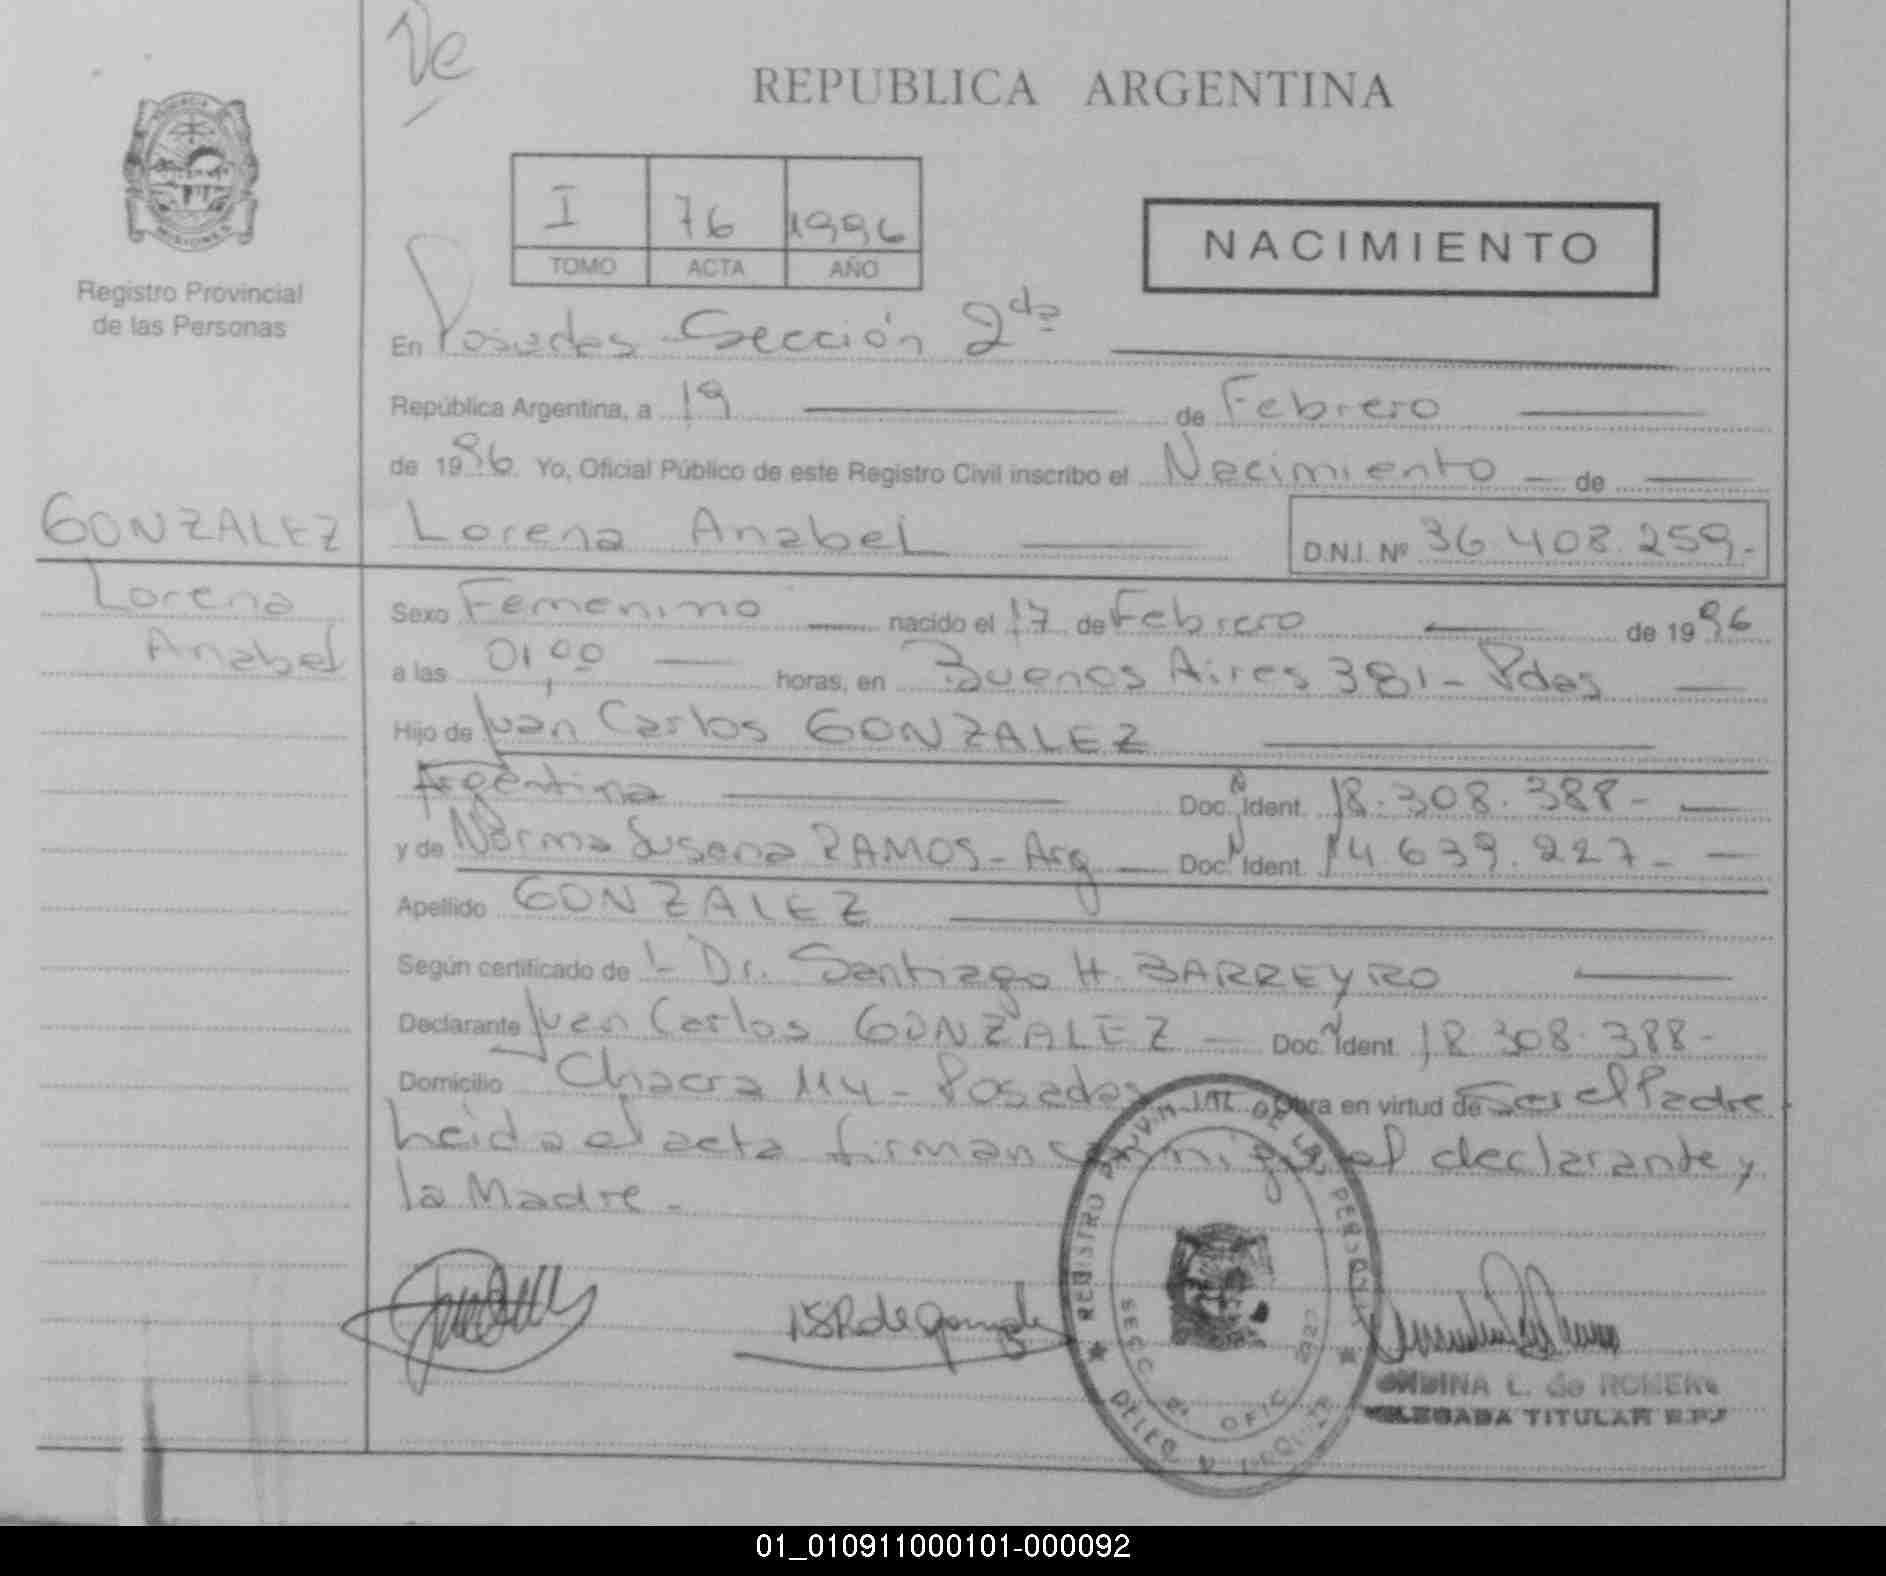 De
REPUBLICA ARGENTINA
PROVINCIA
MISIONES
Registro Provincial
de las Personas
I 76 1996
TOMO ACTA AÑO
NACIMIENTO
En Posadas Sección 2da
República Argentina, a 19 de Febrero
de 1996. Yo, Oficial Público de este Registro Civil inscribo el Nacimiento de
GONZALEZ Lorena Anabel D.N.I. Nº 36.408.259.-
Lorena
Anabel
Sexo Femenino nacido el 17 de Febrero de 1996
a las 01,00 horas, en Buenos Aires 381 - Pdas
Hijo de Juan Carlos GONZALEZ
Argentina Doc. N Ident. 18.308.388-
y de Norma Susana RAMOS - Arg Doc. N Ident. 14.639.227-
Apellido GONZALEZ
Según certificado de - Dr. Santiago H. BARREYRO
Declarante Juan Carlos GONZALEZ - Doc. N Ident. 18.308.388-
Domicilio Chacra 114 - Posadas Obra en virtud de Ser el Padre
Leida el acta firman conmigo el declarante y
la Madre -
REGISTRO PROVINCIAL DE LAS PERSONAS
SECC 2ª OFIC
NSR de Gonzalez
L. de ROMERO
DELEGADA TITULAR
01_010911000101-000092